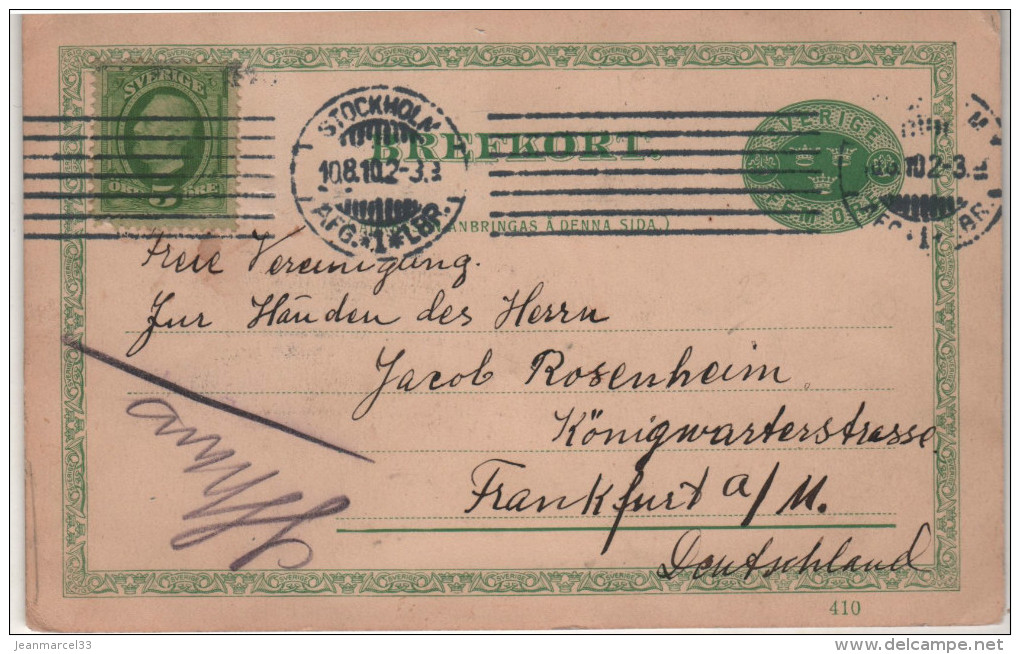 SVERIGE
STOCKHOLM
10.8.10.2-3.
AFG.*1*LBR.
BREFKORT.
ANBRINGAS Å DENNA SIDA.)
SVERIGE
FEM ÖRE
Freie Vereinigung.
Zur Händen des Herrn
Jacob Rosenheim
Königwarterstrasse
Frankfurt a/M.
Deutschland
410
jeanmarcel33
delcampe.net